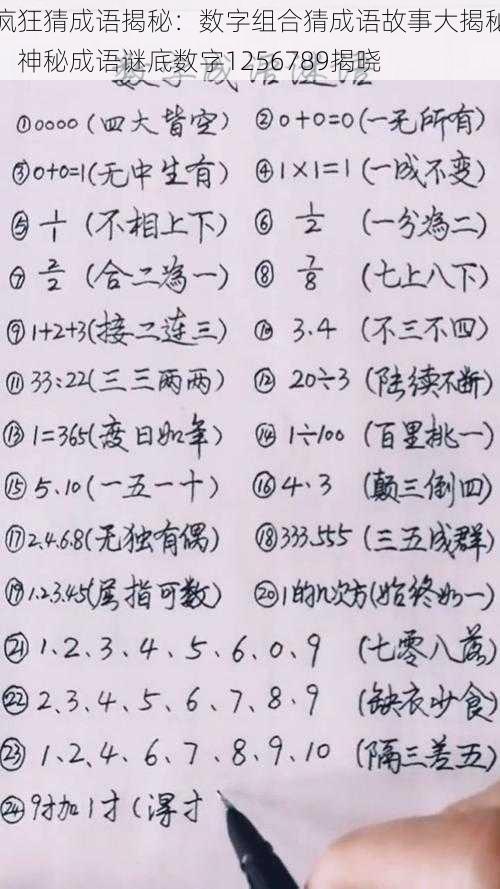 疯狂猜成语揭秘：数字组合猜成语故事大揭秘
神秘成语谜底数字1256789揭晓
数字成语谜语
①0000（四大皆空） ②0+0=0(一无所有)
③0+0=1(无中生有) ④1×1=1(一成不变)
⑤ 1/1 (不相上下) ⑥ 1/2 (一分為二)
⑦ 2/2 (合二為一) ⑧ 7/8 (七上八下)
⑨1+2+3(接二连三) ⑩ 3.4 (不三不四)
⑪33:22(三三两两) ⑫ 20÷3 (陆续不断)
⑬1=365(度日如年) ⑭ 1÷100 (百里挑一)
⑮5.10(一五一十) ⑯4.3 (颠三倒四)
⑰2.4.6.8(无独有偶) ⑱333.555(三五成群)
⑲1.2.3.4.5(屈指可数) ⑳1的几次方(始终如一)
㉑1、2、3、4、5、6、0、9 (七零八落)
㉒2、3、4、5、6、7、8、9 (缺衣少食)
㉓1、2、4、6、7、8、9、10 (隔三差五)
㉔9寸加1寸(得寸